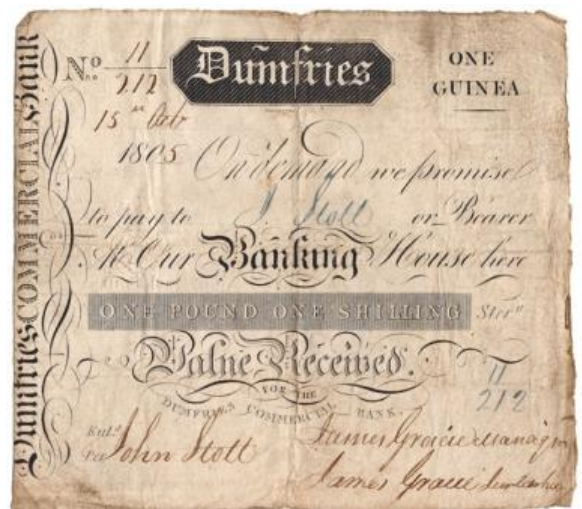 Dumfries COMMERCIAL Bank
No 11/212
Dumfries
ONE
GUINEA
15th Octr
1805 On demand we promise
to pay to J. Stott or Bearer
At Our Banking House here
ONE POUND ONE SHILLING Sterg
Value Received.
11
212
FOR THE
DUMFRIES COMMERCIAL BANK.
Entd
Per John Stott
James Gracie manager
James Gracie